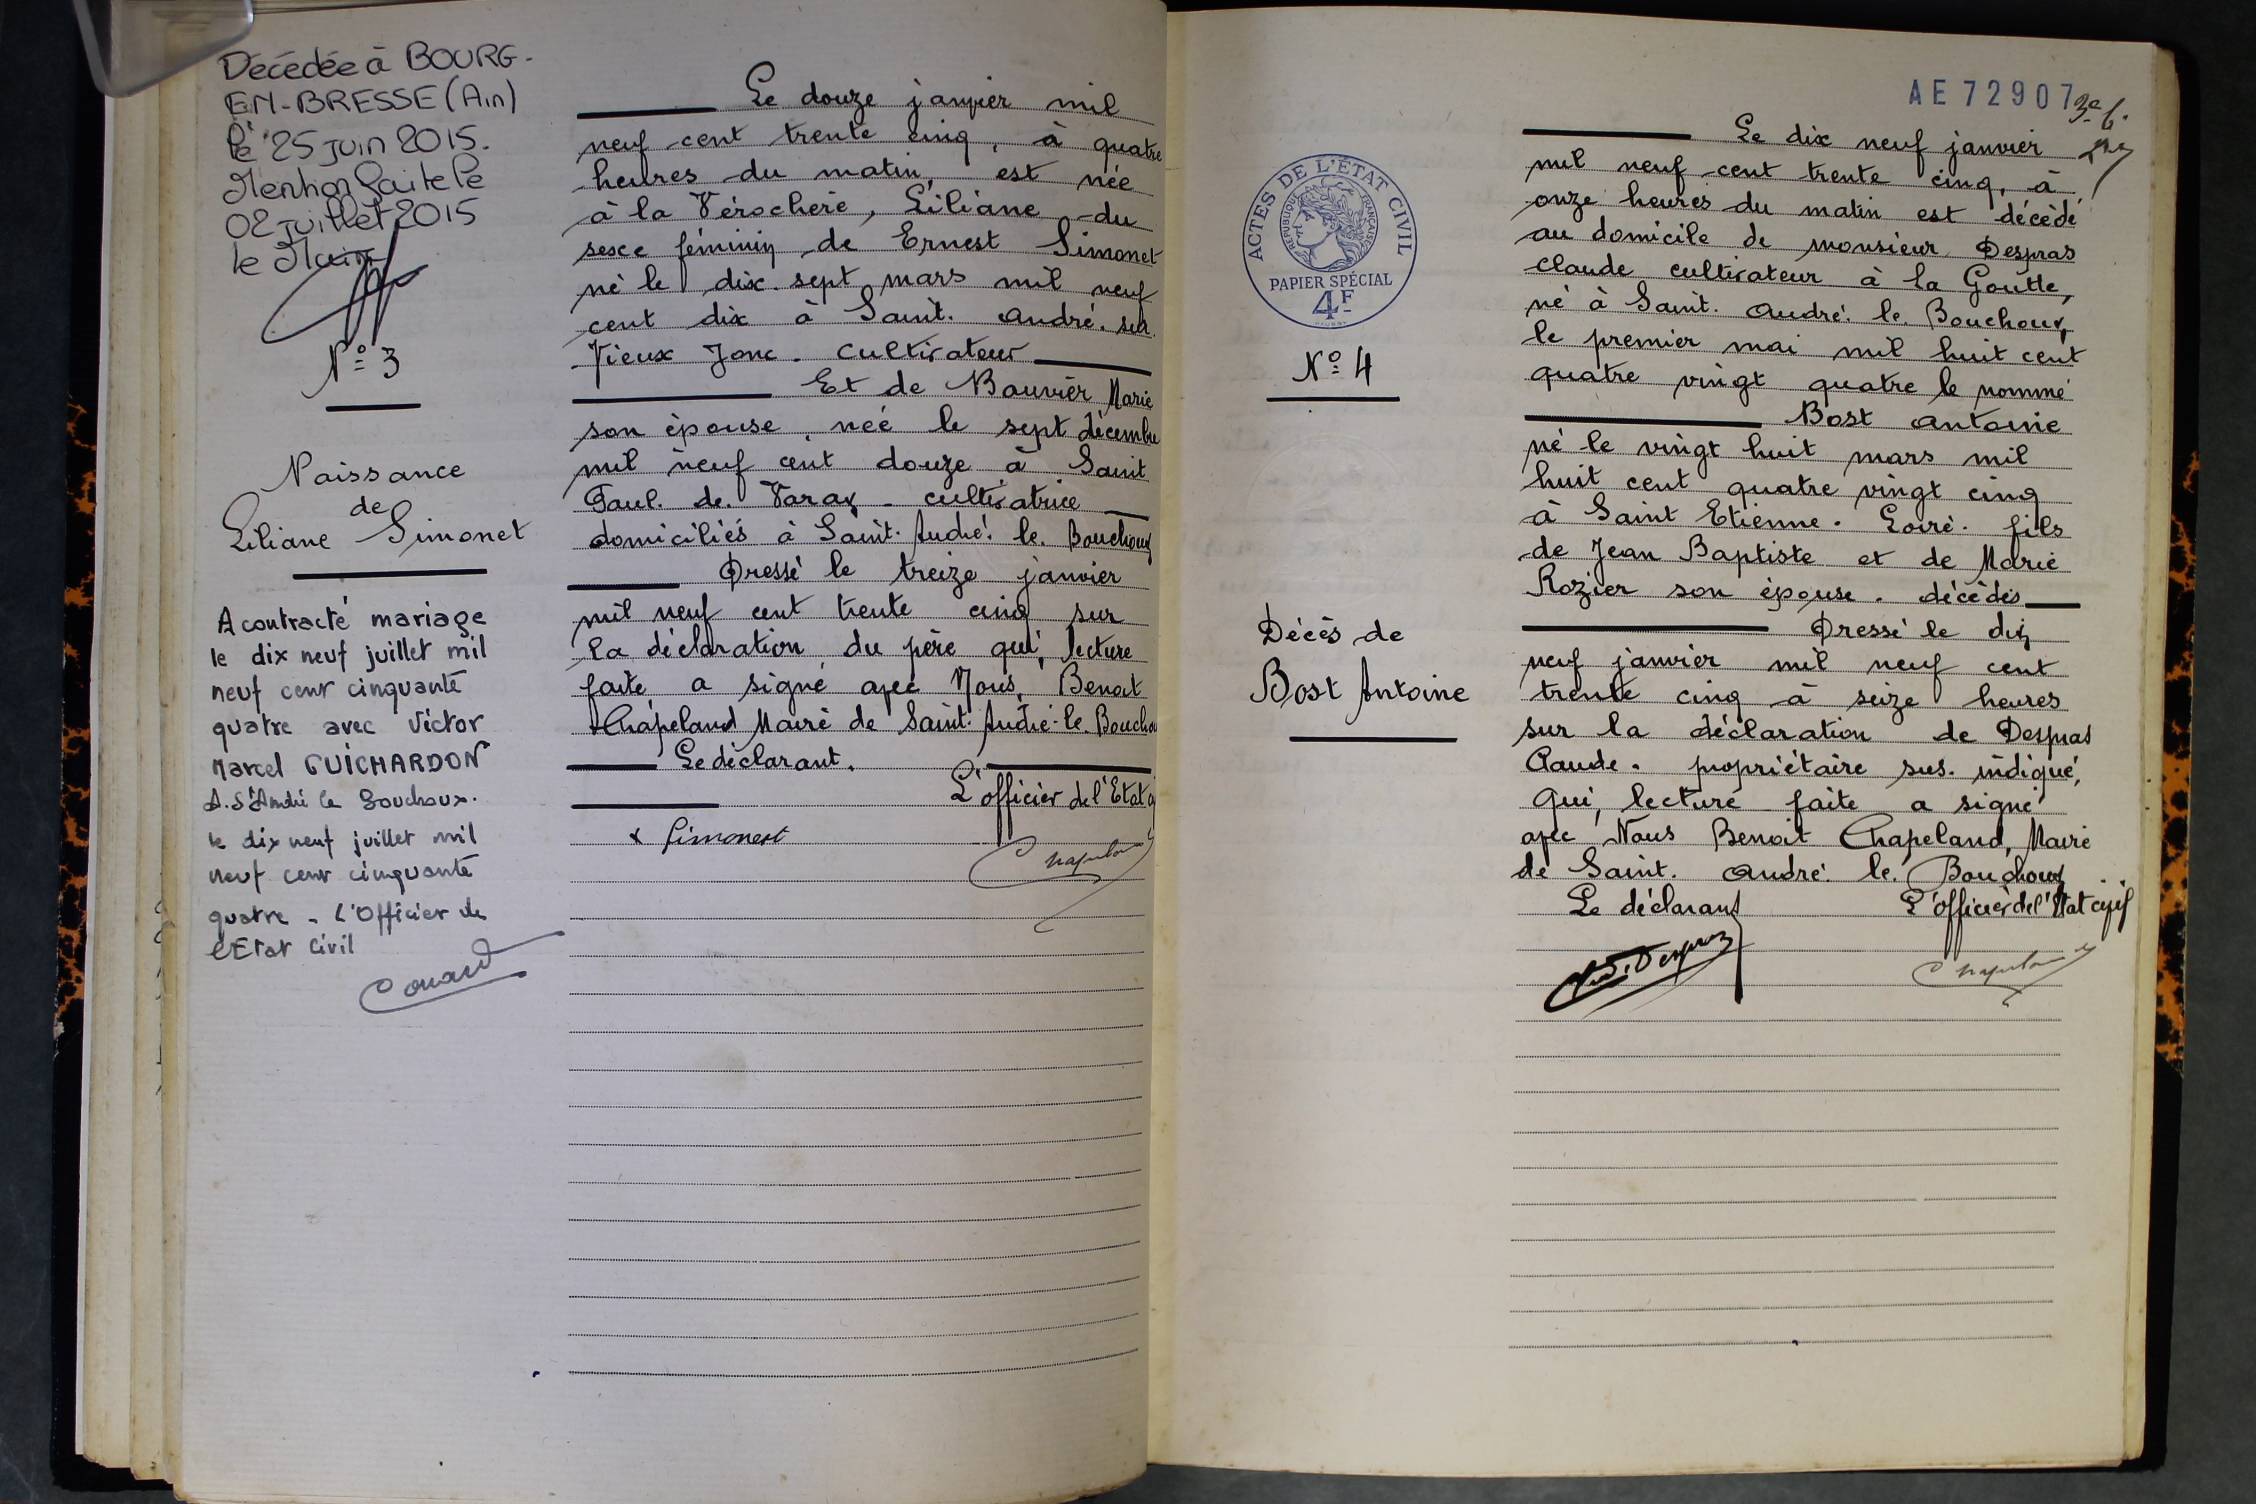 Décédée à BOURG-
EN-BRESSE (Ain)
le 25 juin 2015.
Mention faite le
02 juillet 2015
le Maire
N° 3
Naissance
de
Liliane Simonet
A contracté mariage
le dix neuf juillet mil
neuf cent cinquante
quatre avec Victor
Marcel GUICHARDON
A. St André le Bouchoux.
le dix neuf juillet mil
neuf cent cinquante
quatre - L'Officier de
l'Etat Civil
Le douze janvier mil
neuf cent trente cinq, à quatre
heures du matin, est née
à la Vérochère, Liliane du
sexe féminin de Ernest Simonet
né le dix. sept mars mil neuf
cent dix à Saint. André. sur
Vieux Jonc. Cultivateur
Et de Bouvier Marie
son épouse, née le sept décembre
mil neuf cent douze à Saint
Paul. de. Varax - cultivatrice
domiciliés à Saint. André. le. Bouchoux
Dressé le treize janvier
mil neuf cent trente cinq sur
la déclaration du père qui, lecture
faite a signé avec Nous, Benoit
Chapeland Maire de Saint. André-le. Boucho
Le déclarant.
L'officier de l'Etat c
x Simonet
Chapeland
AE 72907
3e f.
ACTES DE L'ÉTAT CIVIL
RÉPUBLIQUE FRANÇAISE
PAPIER SPÉCIAL
4F
N° 4
Décès de
Bost Antoine
Le dix neuf janvier
mil neuf cent trente cinq, à
onze heures du matin est décédé
au domicile de monsieur Despras
Claude cultivateur à la Goutte,
né à Saint. André. le. Bouchoux,
le premier mai mil huit cent
quatre vingt quatre le nommé
Bost Antoine
né le vingt huit mars mil
huit cent quatre vingt cinq
à Saint Etienne. Loire. fils
de Jean Baptiste et de Marie
Rozier son épouse. décédés
Dressé le dix
neuf janvier mil neuf cent
trente cinq à seize heures
sur la déclaration de Despras
Claude. propriétaire sus. indiqué,
qui, lecture faite a signé
avec Nous Benoit Chapeland, Maire
de Saint. André. le. Bouchoux
Le déclarant
L'officier de l'Etat civil
Chapeland